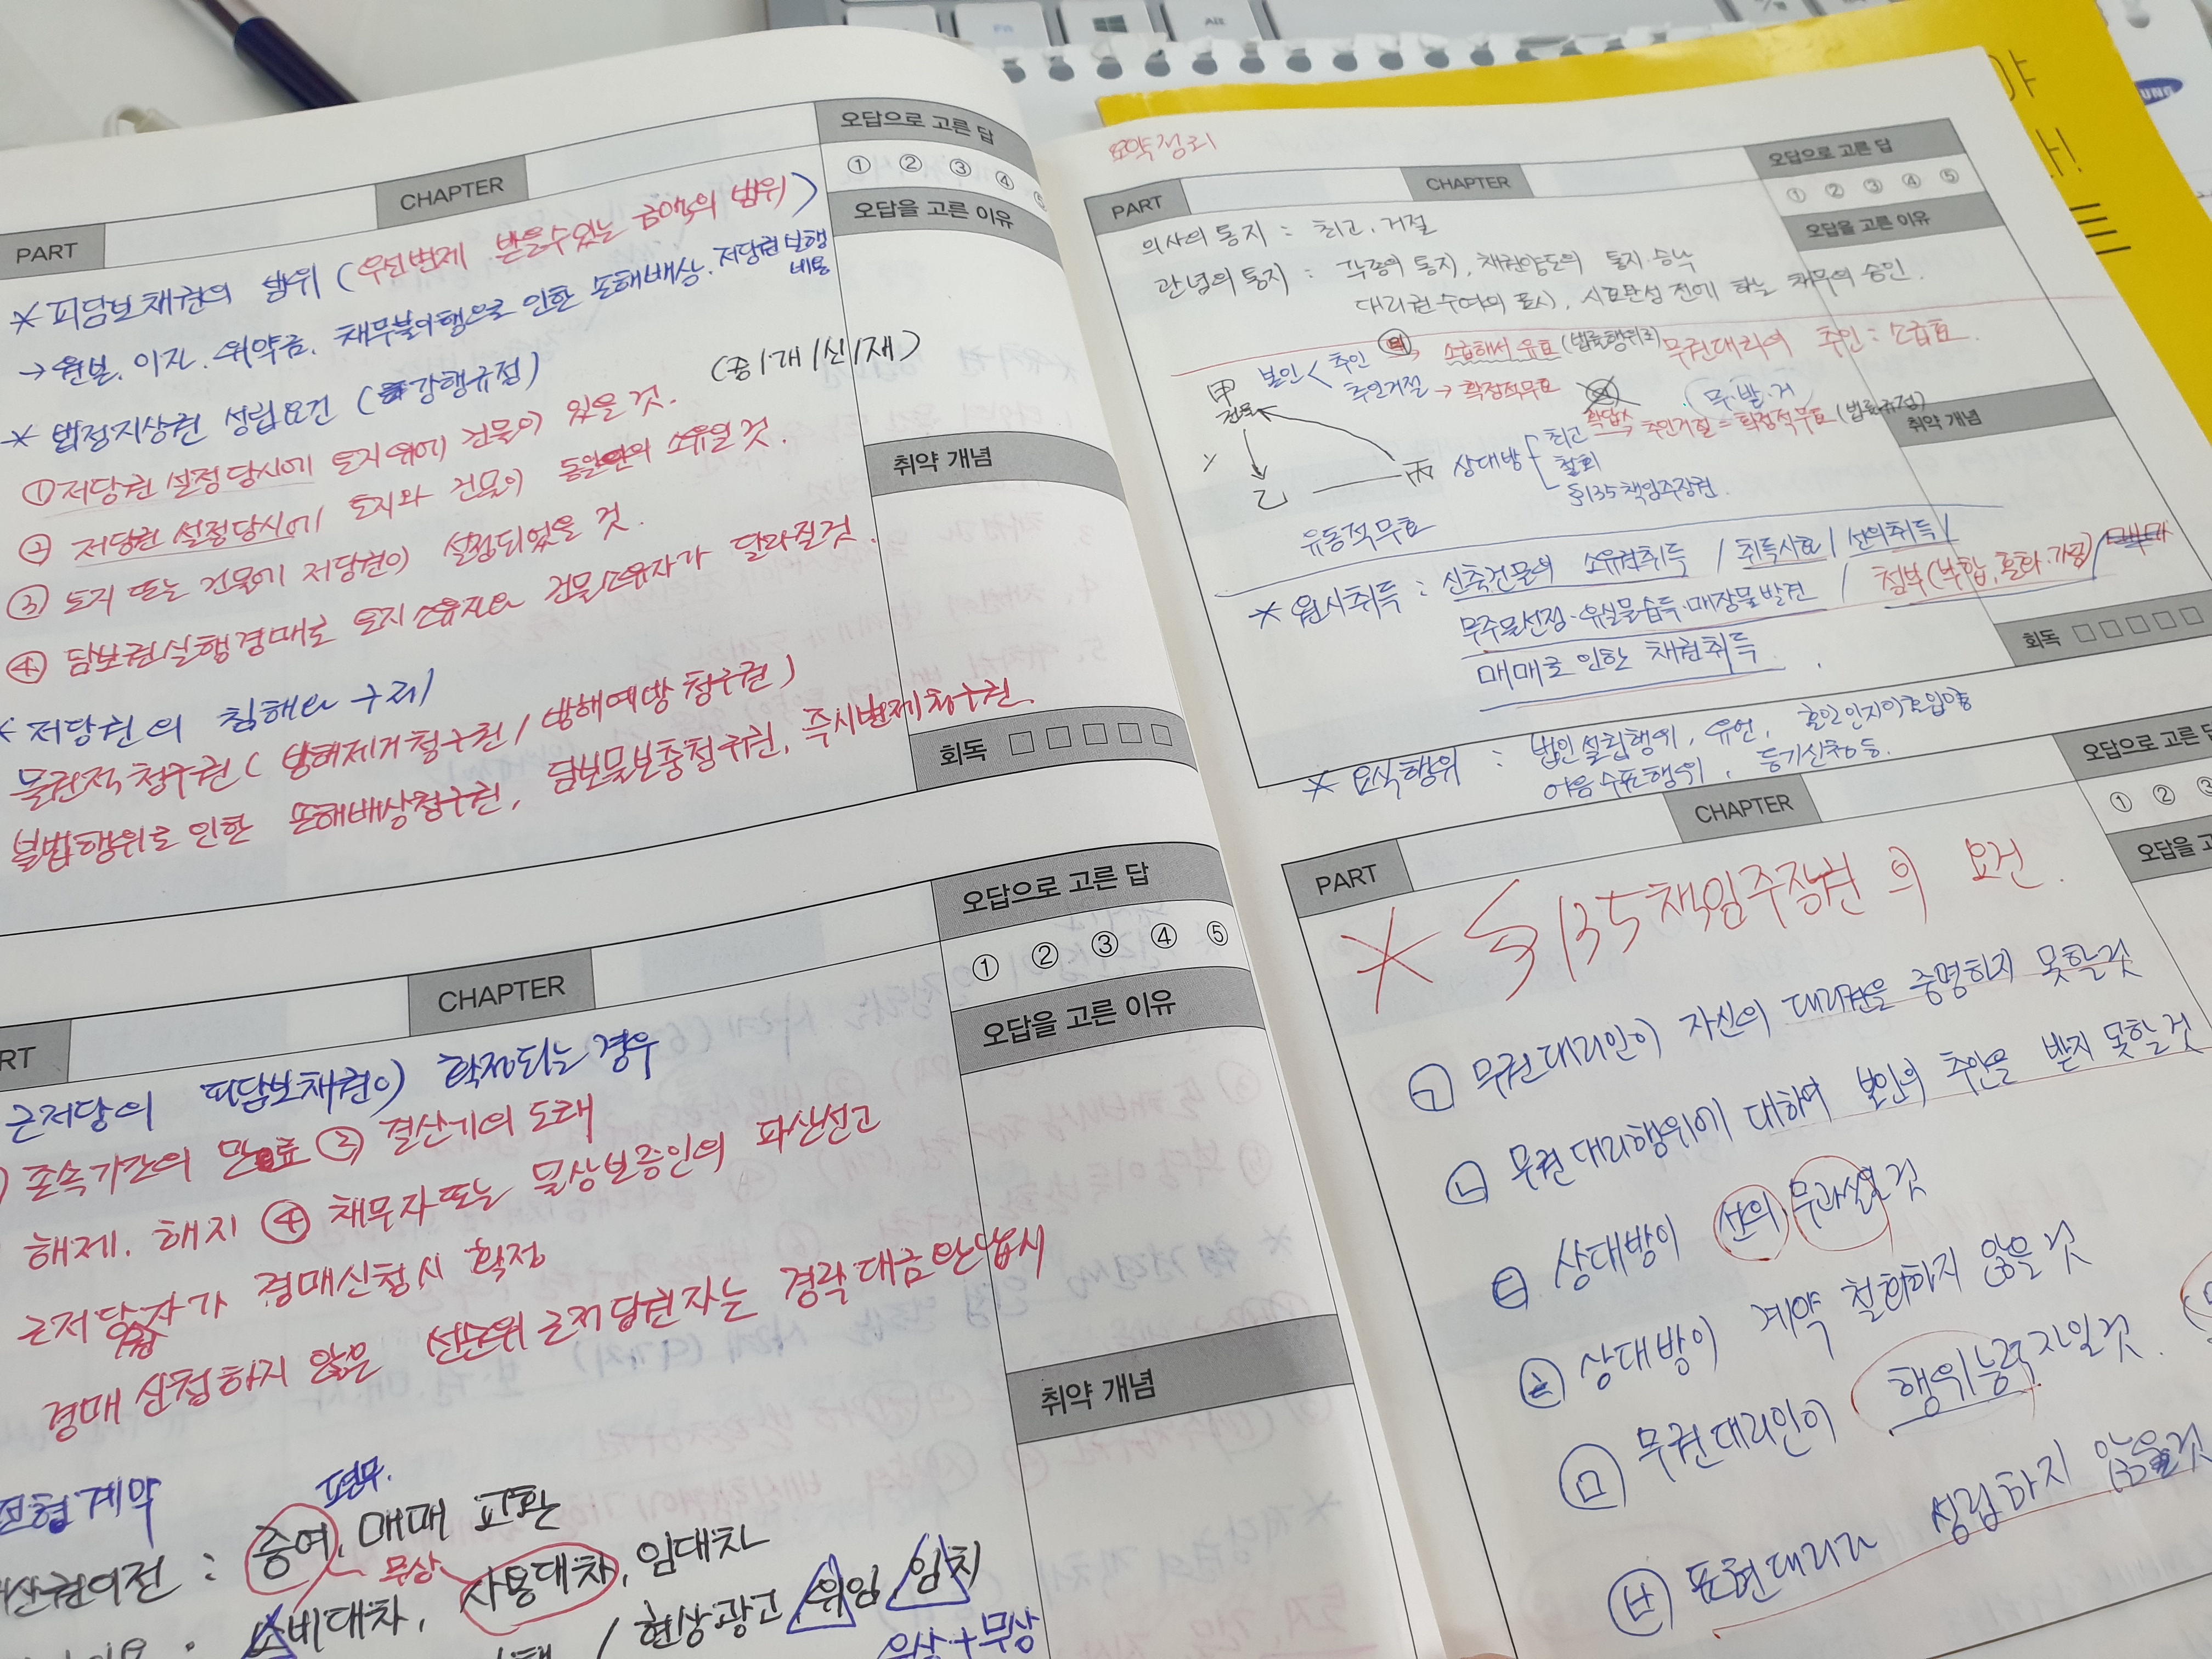 PART
CHAPTER
오답으로 고른 답
① ② ③ ④
오답을 고른 이유
* 피담보채권의 범위 (우선변제 받을수있는 금액의 범위)
→ 원본. 이자. 위약금. 채무불이행으로 인한 손해배상. 저당권 실행
비용
* 법정지상권 성립요건 (강행규정)
(증/개/신/재)
① 저당권 설정당시에 토지위에 건물이 있을 것.
② 저당권 설정당시에 토지와 건물이 동일인의 소유일 것.
③ 토지 또는 건물에 저당권이 설정되었을 것.
④ 담보권실행경매로 토지소유자와 건물소유자가 달라질것.
취약 개념
* 저당권의 침해와 구제
물권적청구권 (방해제거청구권 / 방해예방청구권)
불법행위로 인한 손해배상청구권, 담보물보충청구권, 즉시변제청구권.
회독 □□□□□
CHAPTER
오답으로 고른 답
① ② ③ ④ ⑤
오답을 고른 이유
근저당의 피담보채권이 확정되는 경우
존속기간의 만료 ② 결산기의 도래
해제. 해지 ④ 채무자또는 물상보증인의 파산선고
근저당권자가 경매신청시 확정
경매 신청하지 않은 선순위근저당권자는 경락대금완납시
취약 개념
전형계약
편무.
산권이전 : 증여, 매매 교환
무상
소비대차, 사용대차, 임대차
/ 현상광고 위임 임치
유상+무상
요약정리
PART
CHAPTER
오답으로 고른 답
① ② ③ ④ ⑤
오답을 고른 이유
의사의 통지 : 최고. 거절
관념의 통지 : 각종의 통지, 채권양도의 통지·승낙
대리권수여의 표시), 시효완성 전에 하는 채무의 승인.
甲 본인 < 추인 소급해서 유효 (법률행위로) 무권대리의 추인 : 소급효
추인거절 → 확정적무효
무.발.거
乙
丙 상대방
최고 확답X → 추인거절 = 확정적무효 (법률규정)
철회
§135책임주장권.
유동적무효
취약 개념
* 원시취득 : 신축건물의 소유권취득 / 취득시효 / 선의취득 /
무주물선점·유실물습득·매장물발견 / 첨부(부합, 혼화.가공)/
매매로 인한 채권취득
회독 □□□□□
* 요식행위 : 법인설립행위, 유언, 혼인인지이혼입양
어음수표행위, 등기신청등.
PART
CHAPTER
오답으로 고른
① ②
오답을
* §135책임주장권의 요건.
ㄱ 무권대리인이 자신의 대리권을 증명하지 못할것
ㄴ 무권대리행위에 대하여 본인의 추인을 받지 못할 것
ㄷ 상대방이 선의.무과실일 것
ㄹ 상대방이 계약 철회하지 않을 것
ㅁ 무권대리인이 행위능력자일것.
ㅂ 표현대리가 성립하지 않을것